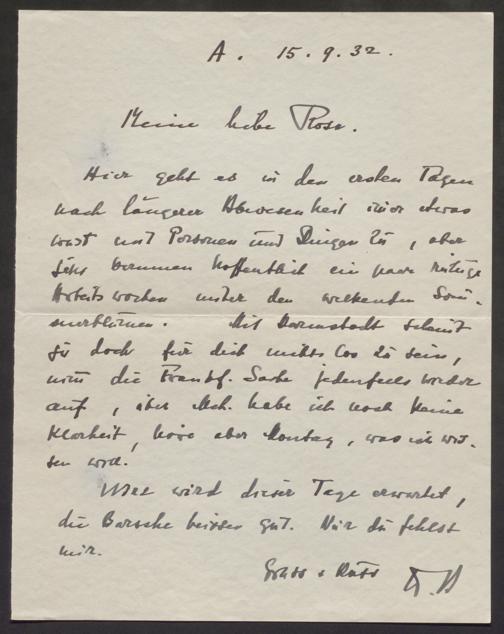 A. 15.9.32.
Meine liebe Rose.
Hier geht es in den ersten Tagen
nach längerer Abwesenheit immer etwas
wüst mit Personen und Dingen zu, aber
jetzt kommen hoffentlich ein paar ruhige
Arbeitswochen unter den welkenden Som-
merblumen. Mit Darmstadt scheint
ja doch für dich nichts los zu sein,
nun die Frankf. Sache jedenfalls wieder
auf, über Mch. habe ich noch keine
Klarheit, höre aber Montag, was ich wis-
sen will.
wird dieser Tage erwartet,
die Barsche beissen gut. Nur du fehlst
mir.
Gruss + Kuss